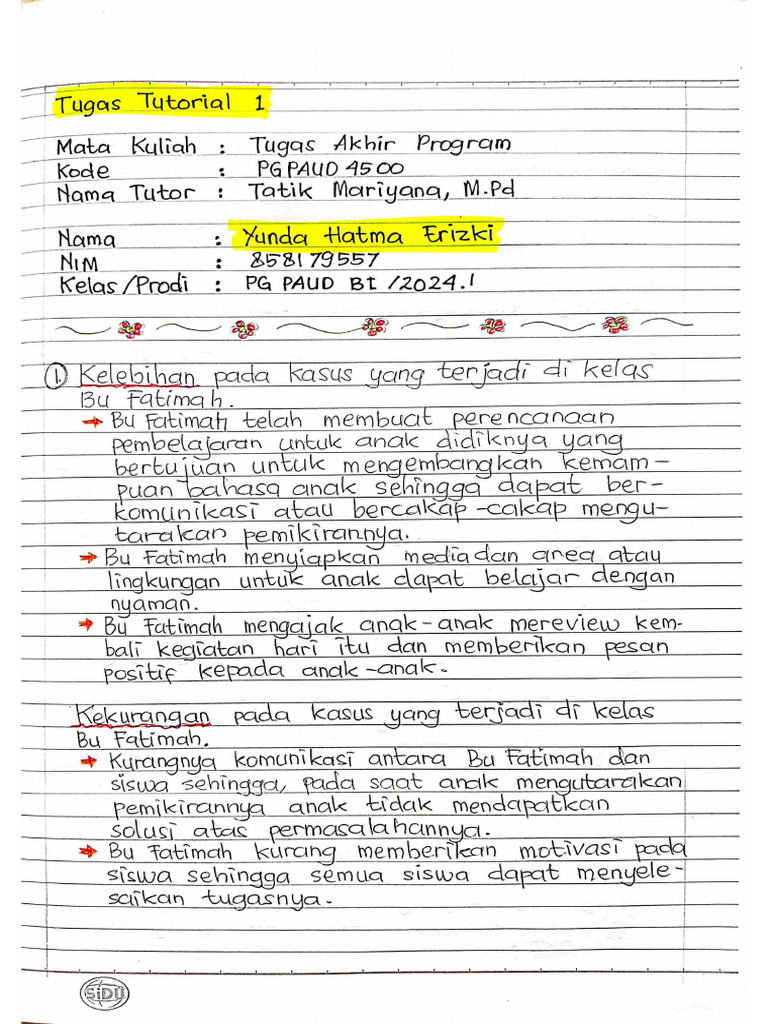 Tugas Tutorial 1
Mata Kuliah : Tugas Akhir Program
Kode : PG PAUD 4500
Nama Tutor : Tatik Mariyana, M.Pd
Nama : Yunda Hatma Erizki
NIM : 858179557
Kelas/Prodi : PG PAUD BI /2024.1
1. Kelebihan pada kasus yang terjadi di kelas
Bu Fatimah.
→ Bu Fatimah telah membuat perencanaan
pembelajaran untuk anak didiknya yang
bertujuan untuk mengembangkan kemam-
puan bahasa anak sehingga dapat ber-
komunikasi atau bercakap-cakap mengu-
tarakan pemikirannya.
→ Bu Fatimah menyiapkan media dan area atau
lingkungan untuk anak dapat belajar dengan
nyaman.
→ Bu Fatimah mengajak anak-anak mereview kem-
bali kegiatan hari itu dan memberikan pesan
positif kepada anak-anak.
Kekurangan pada kasus yang terjadi di kelas
Bu Fatimah.
→ Kurangnya komunikasi antara Bu Fatimah dan
siswa sehingga, pada saat anak mengutarakan
pemikirannya anak tidak mendapatkan
solusi atas permasalahannya.
→ Bu Fatimah kurang memberikan motivasi pada
siswa sehingga semua siswa dapat menyele-
saikan tugasnya.
SiDU